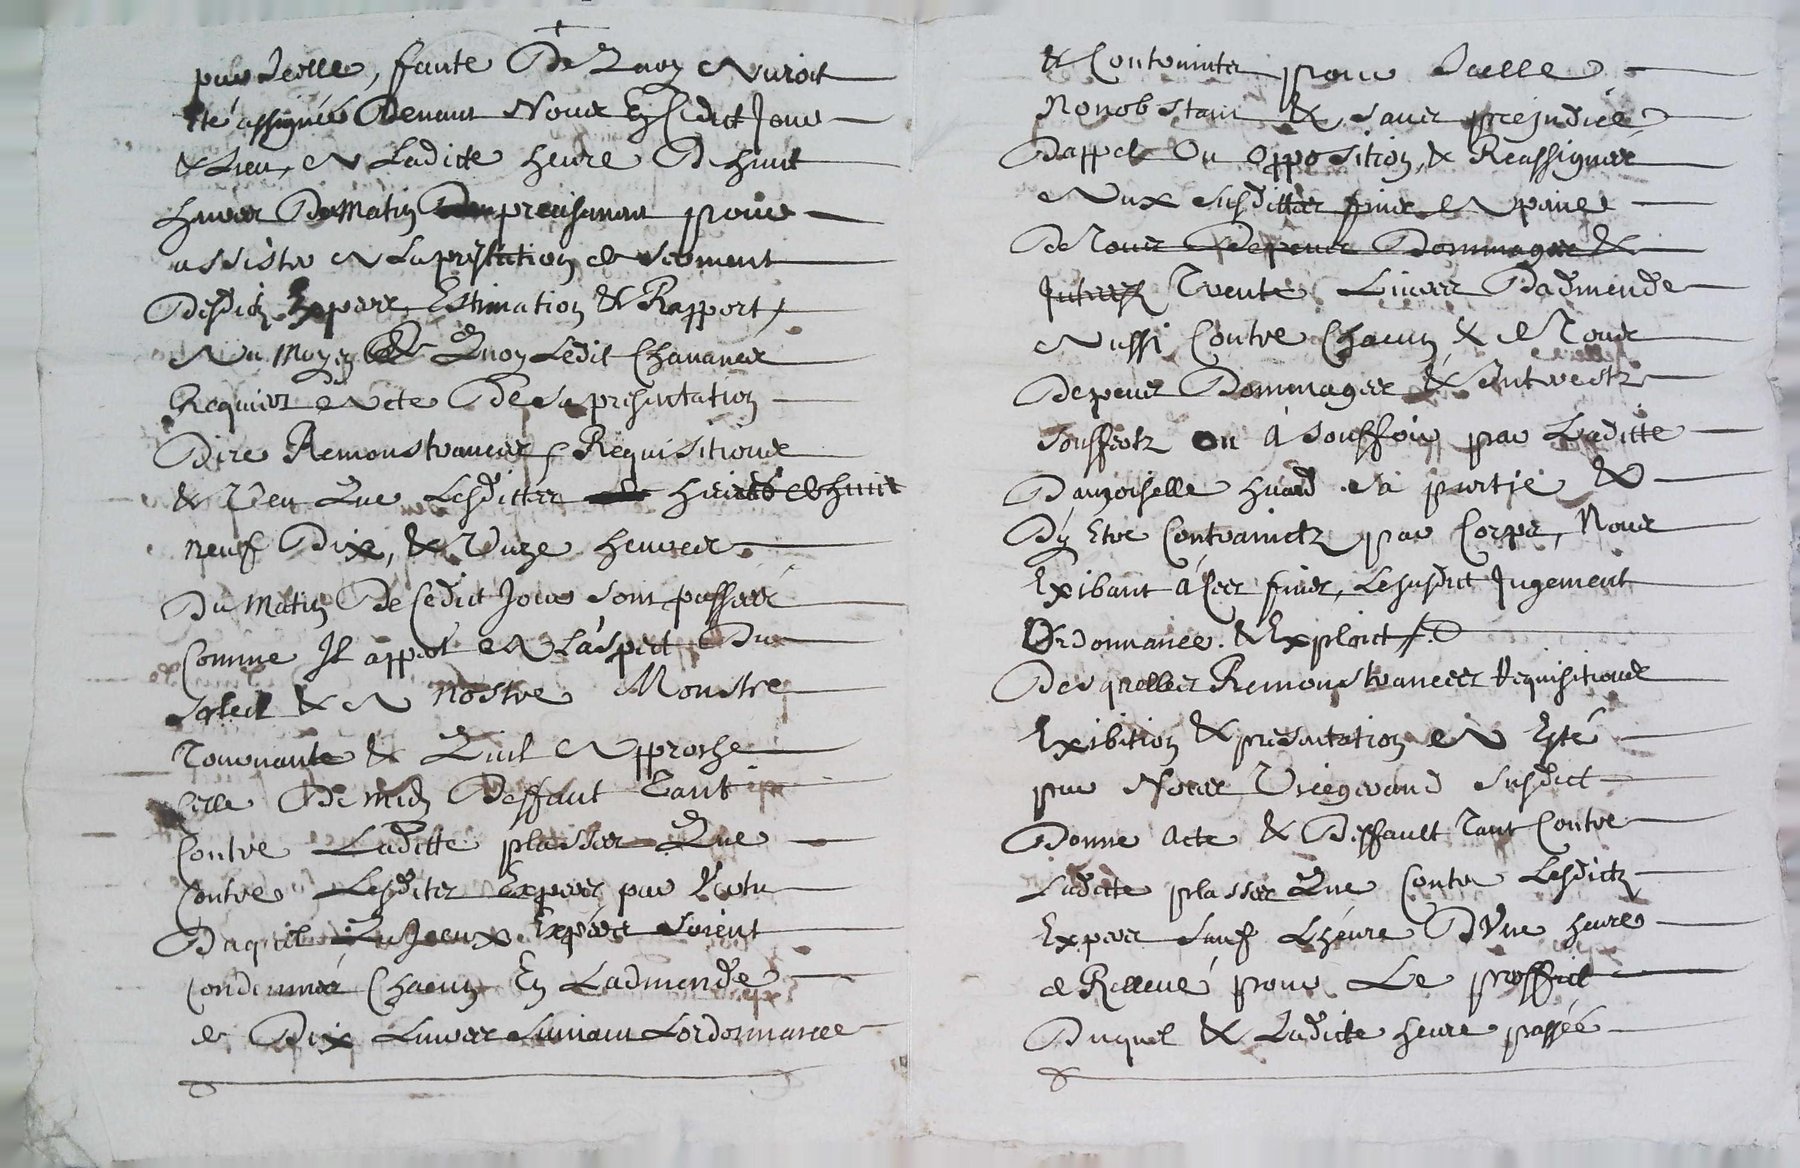 par Icelle, faute De Quoy Auroit
été assignés Devant Nous En Cedict Jour
& Lieu, A Ladicte heure De huit
heures Du Matin precisement pour
assister A La prestation de serment
Desdicts Expers, Estimation & Rapport,
Au Moyen De Quoy Ledit Chavances
Requiert Acte De Sa presentation
Dire Remonstrances, Requisitions
& Veu Que Lesdittes heures de huit
neuf Dix, & Unze heures
Du Matin De Cedict Jour sont passees
Comme Il appert A L'aspect Du
Soleil & A nostre Monstre
Tournante & Quil Approche
Celle De midy Deffaut Tant
Contre Laditte plasses Que
Contre Lesdites Expers par Vertu
Duquel Iceux Expers soient
Condemnés Chacun En Ladmende
de Dix Livres Suivant Lordonnance
& Contraints pour Icelle
Nonobstant & sans prejudice
Dappel Ou Opposition, & Reassignes
Aux susdittes fins A peine
De Tous Depens Dommages &
Interests Trente Livres Dadmende
Aussi Contre Chacun & de Tous
Depens Dommages & Interests
soufferts ou A souffrir par Laditte
Damoiselle huard sa partie &
Dy Etre Contraincts par Corps, Nous
Exibant A Ces fins, Lesusdict Jugement
Ordonnance. & Exploict
Desquelles Remonstrances Requisitions
Exibition & presentation A Esté
par Nous Viegerand Susdict
Donne Acte & Deffault Tant Contre
Ladicte plasses Que Contre Lesdicts
Expers Sauf Lheure D'Une heure
de Rellevé pour Le proffict
Duquel & Ladicte heure passée